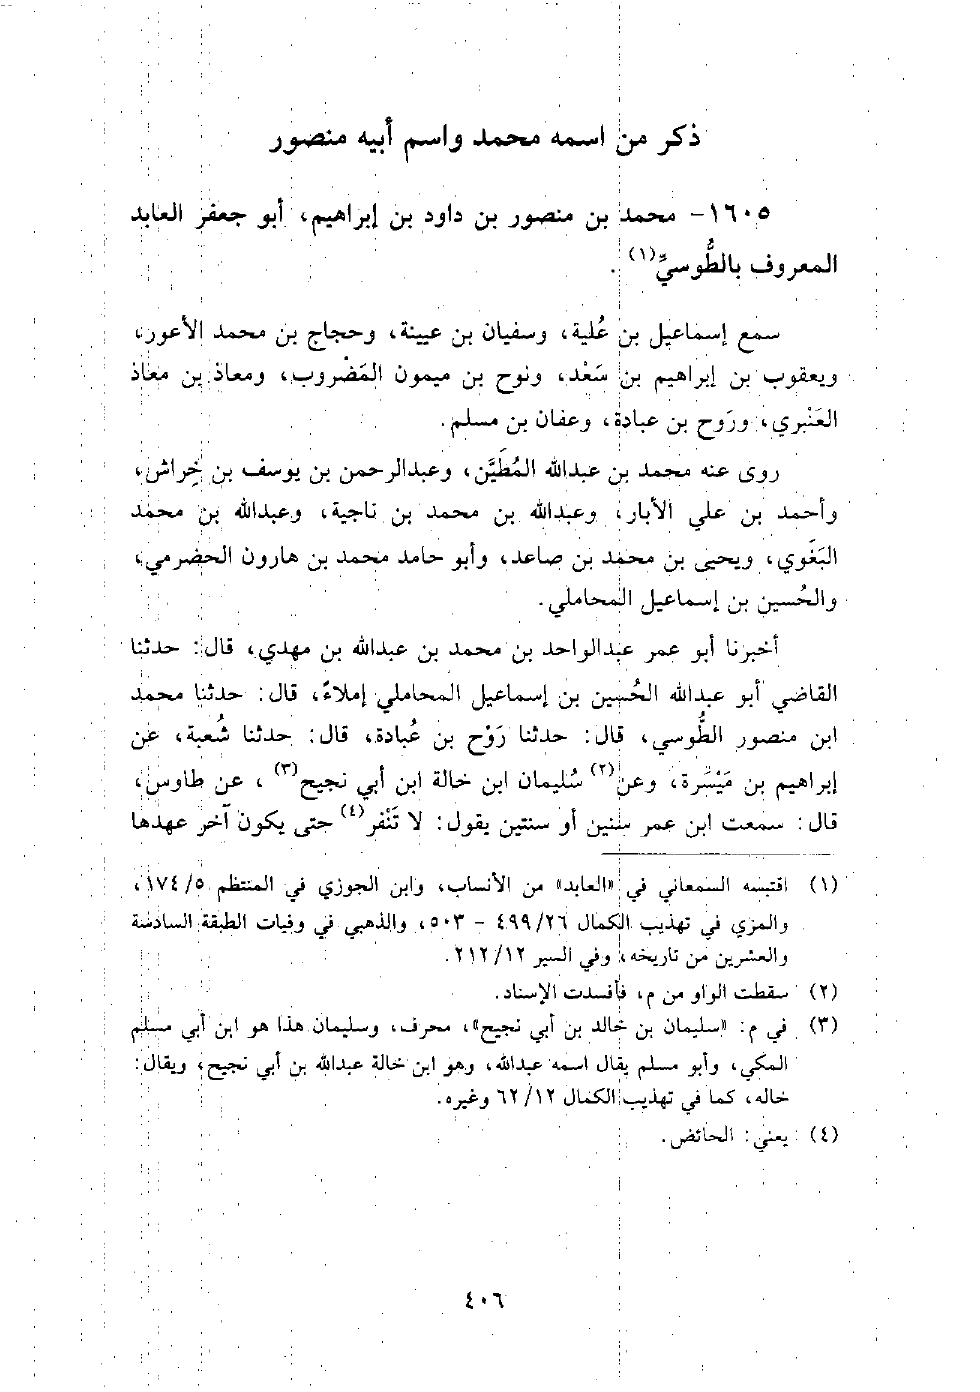 ذكر من اسمه محمد واسم أبيه منصور
١٦٠٥- محمد بن منصور بن داود بن إبراهيم، أبو جعفر العابد
المعروف بالطُّوسيِّ(١) .
سمع إسماعيل بن عُلية، وسفيان بن عيينة، وحجاج بن محمد الأعور،
ويعقوب بن إبراهيم بن سَعْد، ونوح بن ميمون المَضْروب، ومعاذ بن معاذ
العَنْبري، ورَوح بن عبادة، وعفان بن مسلم.
روى عنه محمد بن عبدالله المُطَيَّن، وعبدالرحمن بن يوسف بن خِراش،
وأحمد بن علي الأبار، وعبدالله بن محمد بن ناجية، وعبدالله بن محمد
البَغَوي، ويحيى بن محمد بن صاعد، وأبو حامد محمد بن هارون الحضرمي،
والحُسين بن إسماعيل المحاملي.
أخبرنا أبو عمر عبدالواحد بن محمد بن عبدالله بن مهدي، قال: حدثنا
القاضي أبو عبدالله الحُسين بن إسماعيل المحاملي إملاءً، قال: حدثنا محمد
ابن منصور الطُّوسي، قال: حدثنا رَوْح بن عُبادة، قال: حدثنا شُعبة، عن
إبراهيم بن مَيْسَرة، وعن(٢) سُليمان ابن خالة ابن أبي نجيح(٣) ، عن طاوس،
قال: سمعت ابن عمر سنين أو سنتين يقول: لا تَنْفر(٤) حتى يكون آخر عهدها
(١) اقتبسه السمعاني في «العابد» من الأنساب، وابن الجوزي في المنتظم ٥/ ١٧٤،
والمزي في تهذيب الكمال ٢٦/ ٤٩٩ - ٥٠٣، والذهبي في وفيات الطبقة السادسة
والعشرين من تاريخه، وفي السير ١٢/ ٢١٢.
(٢) سقطت الواو من م، فأفسدت الإسناد.
(٣) في م: «سليمان بن خالد بن أبي نجيح»، محرف، وسليمان هذا هو ابن أبي مسلم
المكي، وأبو مسلم يقال اسمه عبدالله، وهو ابن خالة عبدالله بن أبي نجيح، ويقال:
خاله، كما في تهذيب الكمال ١٢/ ٦٢ وغيره.
(٤) يعني: الحائض.
٤٠٦